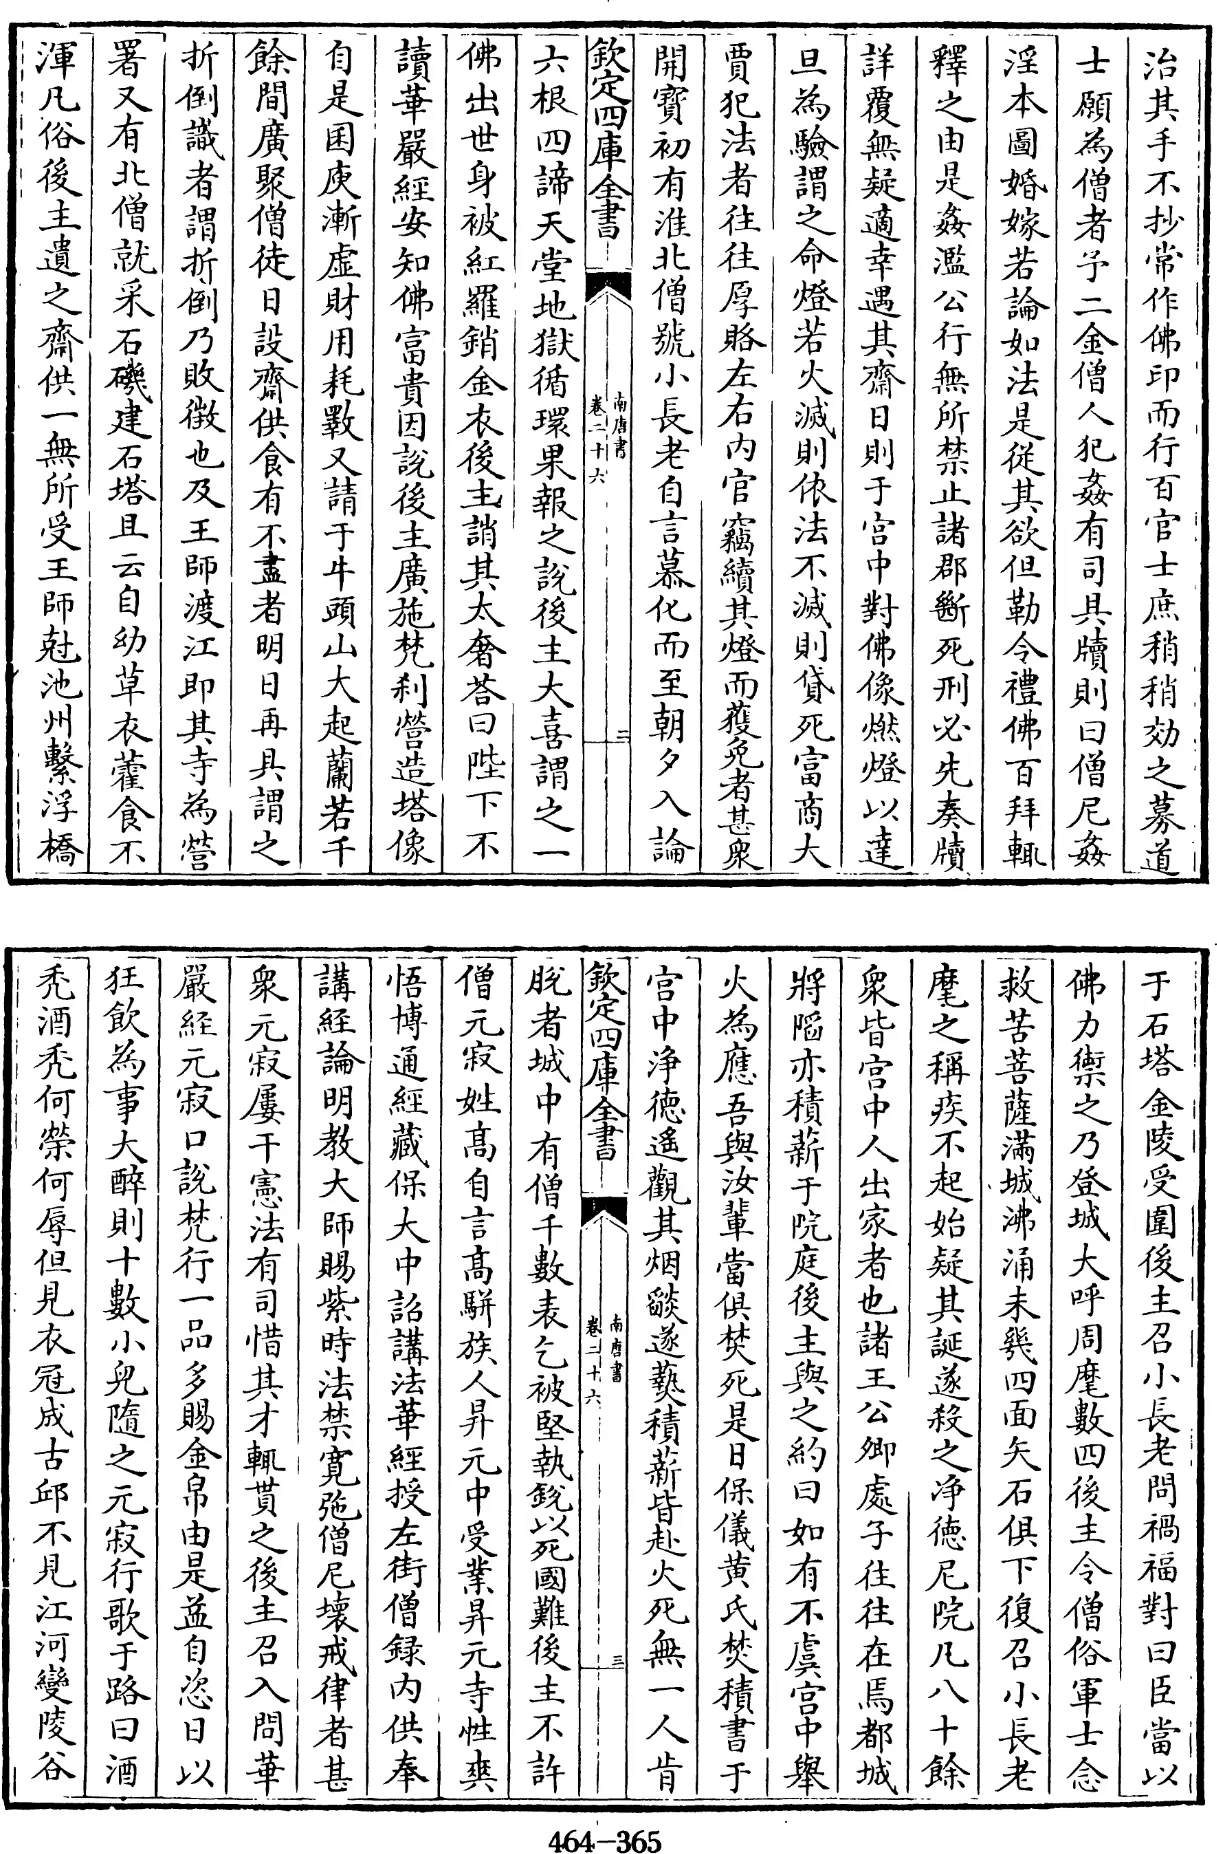 治其手不抄常作佛印而行百官士庶稍稍効之募道
士願為僧者予二金僧人犯姦有司具牘則曰僧尼姦
淫本圖婚嫁若論如法是從其欲但勒令禮佛百拜輒
釋之由是姦濫公行無所禁止諸郡斷死刑必先奏牘
詳覆無疑適幸遇其齋日則于宮中對佛像燃燈以達
旦為驗謂之命燈若火滅則依法不滅則貸死富商大
賈犯法者往往厚賂左右內官竊續其燈而獲免者甚衆
開寶初有淮北僧號小長老自言慕化而至朝夕入論
欽定四庫全書
南唐書
卷二十六
二
六根四諦天堂地獄循環果報之說後主大喜謂之一
佛出世身被紅羅銷金衣後主誚其太奢荅曰陛下不
讀華嚴經安知佛富貴因說後主廣施梵利營造塔像
自是囷庾漸虛財用耗斁又請于牛頭山大起蘭若千
餘間廣聚僧徒日設齋供食有不盡者明日再具謂之
折倒識者謂折倒乃敗徵也及王師渡江即其寺為營
署又有北僧就采石磯建石塔且云自幼草衣藿食不
渾凡俗後主遺之齋供一無所受王師尅池州繫浮橋
于石塔金陵受圍後主召小長老問禍福對曰臣當以
佛力禦之乃登城大呼周麾數四後主令僧俗軍士念
救苦菩薩滿城沸涌未幾四面矢石俱下復召小長老
麾之稱疾不起始疑其誕遂殺之淨德尼院凡八十餘
衆皆宮中人出家者也諸王公卿處子往往在焉都城
將陷亦積薪于院庭後主與之約曰如有不虞宮中舉
火為應吾與汝輩當俱焚死是日保儀黃氏焚積書于
宮中淨德遥觀其烟燄遂爇積薪皆赴火死無一人肯
欽定四庫全書
南唐書
卷二十六
三
脫者城中有僧千數表乞被堅執銳以死國難後主不許
僧元寂姓高自言高駢族人昇元中受業昇元寺性爽
悟博通經藏保大中詔講法華經授左街僧録內供奉
講經論明教大師賜紫時法禁寬弛僧尼壞戒律者甚
衆元寂屢干憲法有司惜其才輒貰之後主召入問華
嚴經元寂口說梵行一品多賜金帛由是益自恣日以
狂飲為事大醉則十數小兒隨之元寂行歌于路曰酒
禿酒禿何榮何辱但見衣冠成古邱不見江河變陵谷
464-365